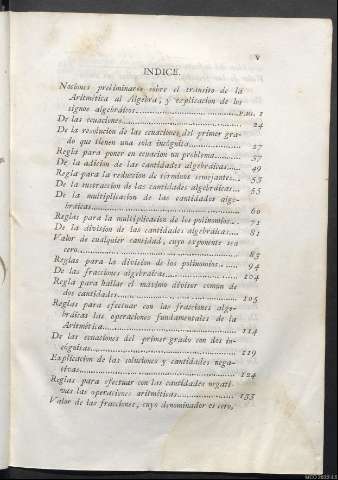 V
INDICE.
Nociones preliminares sobre el transito de la
Aritmética al Algebra, y explicacion de los
signos algebráicos. PAG. 1
De las ecuaciones. 24
De la resolucion de las ecuaciones del primer gra-
do que tienen una sola incógnita. 27
Regla para poner en ecuacion un problema. 37
De la adicion de las cantidades algebráicas. 49
Regla para la reduccion de términos semejantes. 53
De la sustraccion de las cantidades algebráicas. 55
De la multiplicacion de las cantidades alge-
bráicas. 60
Reglas para la multiplicacion de los polinomios. 71
De la division de las cantidades algebráicas. 81
Valor de cualquier cantidad, cuyo exponente sea
cero. 83
Reglas para la division de los polinomios. 94
De las fracciones algebráicas. 104
Regla para hallar el máximo divisor comun de
dos cantidades. 105
Reglas para efectuar con las fracciones alge-
bráicas las operaciones fundamentales de la
Aritmética. 114
De las ecuaciones del primer grado con dos in-
cógnitas. 119
Explicacion de las soluciones y cantidades nega-
tivas. 124
Reglas para efectuar con las cantidades negati-
vas las operaciones aritméticas. 133
Valor de las fracciones, cuyo denominador es cero,